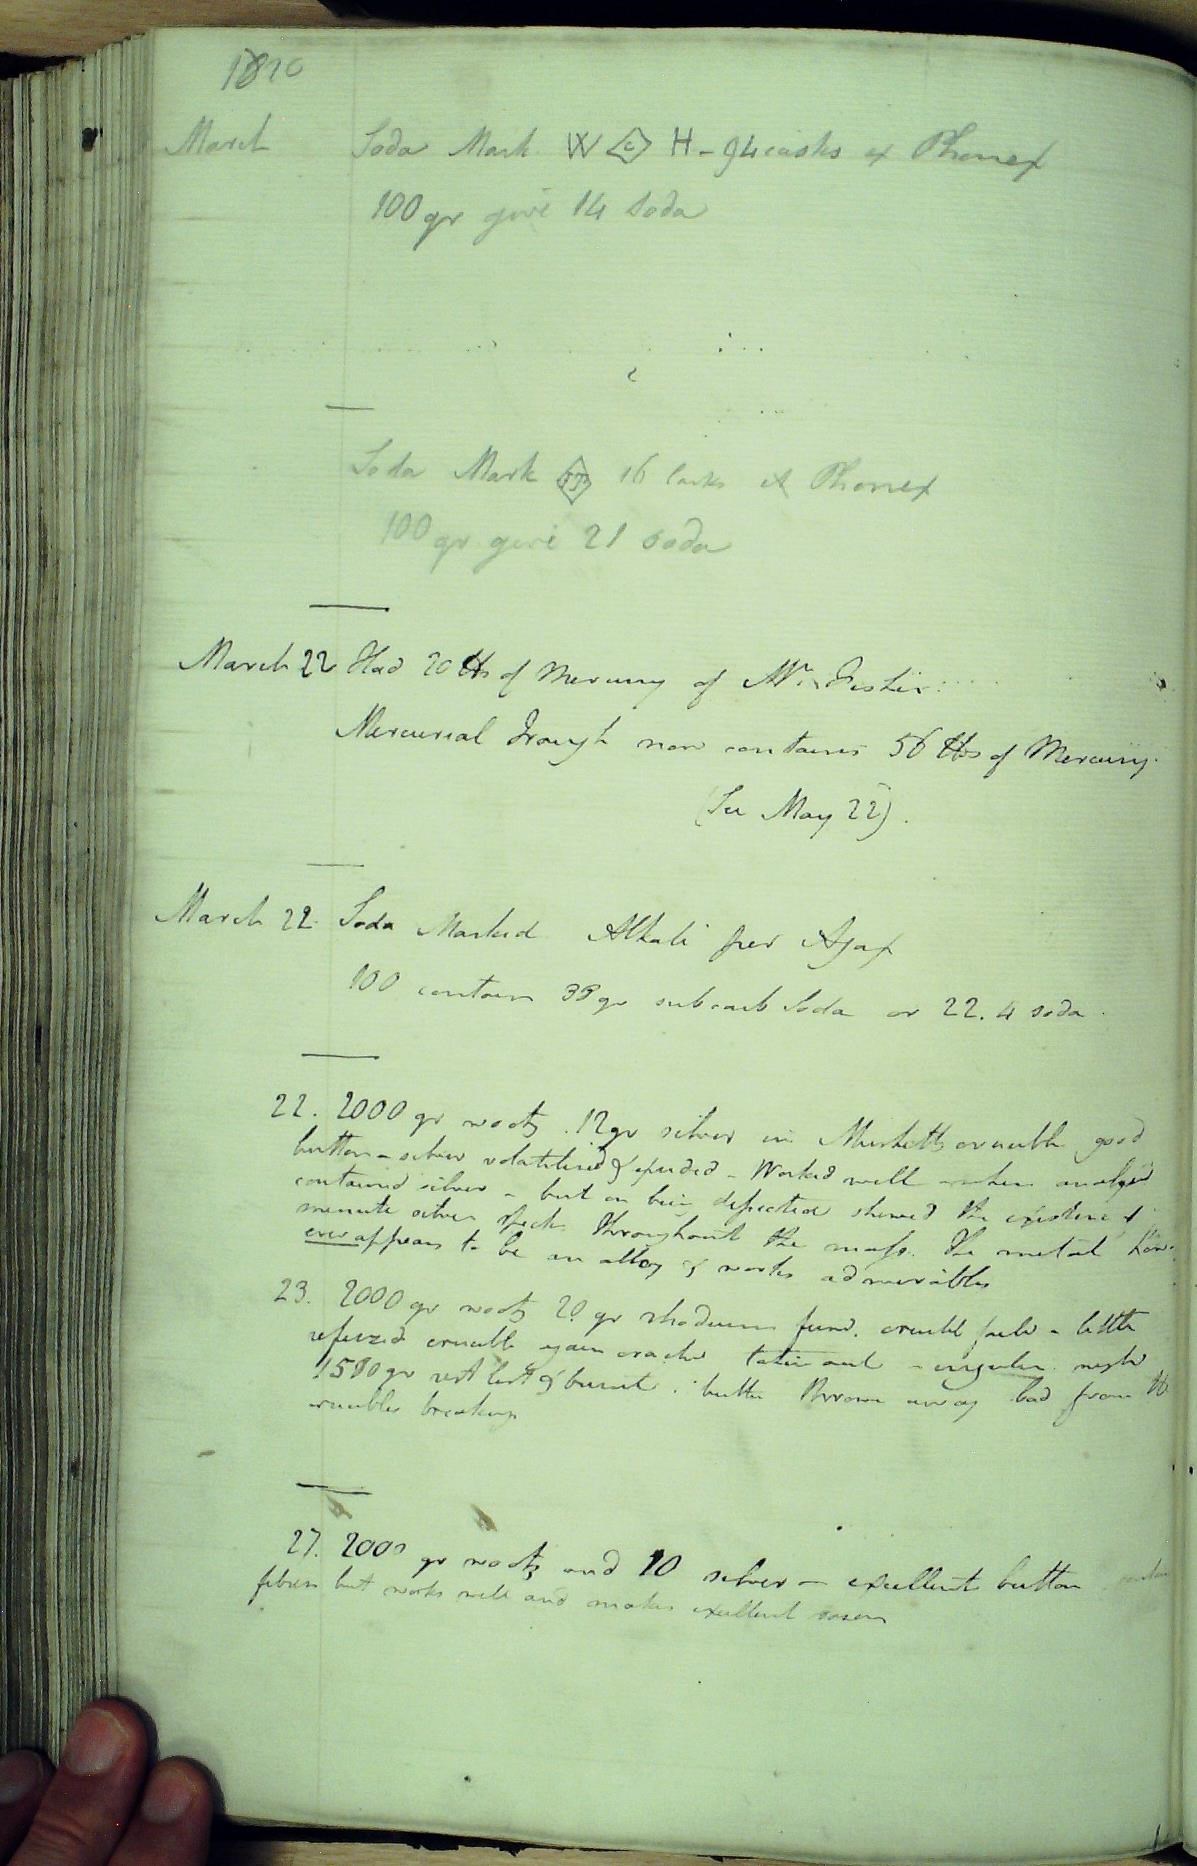 1820
March Soda Mark W <C> H - 94 casks ex Phonex
100 gr give 14 soda
Soda Mark 16 casks ex Phonex
100 gr give 21 soda
March 22 Had 20 lbs of Mercury of Mr Fisher
Mercurial Trough now contains 56 lbs of Mercury.
(See May 22).
March 22. Soda Marked Alkali per Ajax
100 contain 38 gr subcarb Soda or 22.4 soda.
22. 2000 gr wootz. 12 gr silver in crucible good
button - silver volatilised & - Worked well - when analysed
contained silver - but on being dissected shewed the existence of
minute silver specks throughout the mass. The metal how-
ever appears to be an alloy & works admirably
23. 2000 gr wootz 20 gr rhodium fused. crucible - little
crucible again cracked taken out -
1580 gr rest lost & burnt. button thrown away bad from the
crucibles breaking
27. 2000 gr wootz and 10 silver - excellent button
but works well and makes excellent razors